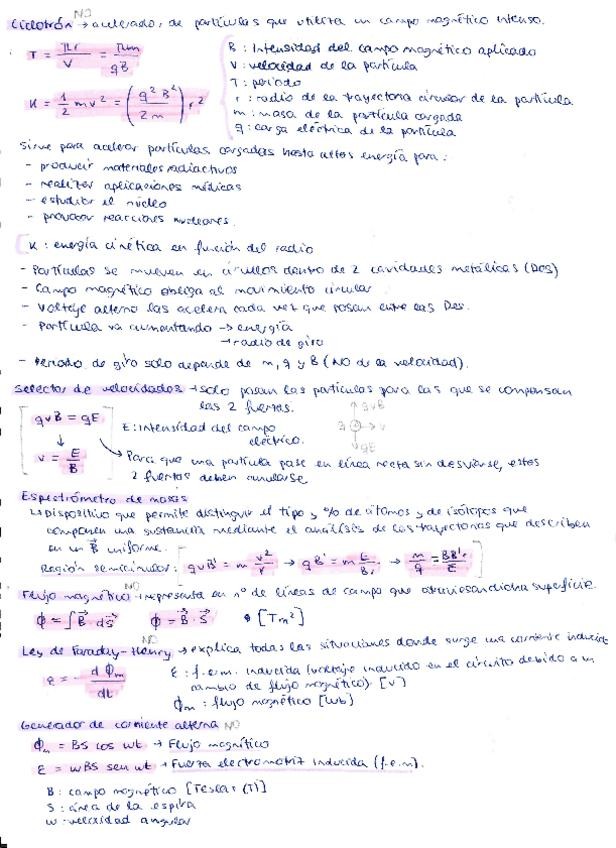 NO
Ciclotrón → acelerador de partículas que utiliza un campo magnético intenso.
T = πr/v = πm/qB
B: Intensidad del campo magnético aplicado
V: velocidad de la partícula
T: periodo
r: radio de la trayectoria circular de la partícula
m: masa de la partícula cargada
q: carga eléctrica de la partícula
K = 1/2 m v² = (q² B²/2m) r²
Sirve para acelerar partículas cargadas hasta altas energía para:
- producir materiales radiactivos
- realizar aplicaciones médicas
- estudiar el núcleo
- provocar reacciones nucleares.
K: energía cinética en función del radio
- Partículas se mueven en círculos dentro de 2 cavidades metálicas (Des)
- Campo magnético obliga al movimiento circular
- Voltaje alterno las acelera cada vez que pasan entre las Des.
- Partícula va aumentando → energía
→ radio de giro
- Periodo de giro solo depende de m, q y B (NO de la velocidad).
Selector de velocidades → solo pasan las partículas para las que se compensan
las 2 fuerzas.
qvB = qE
↓
v = E/B
E: intensidad del campo
eléctrico.
qvB
q → v
qE
→ Para que una partícula pase en línea recta sin desviarse, estas
2 fuerzas deben anularse
Espectrómetro de masas
↳ Dispositivo que permite distinguir el tipo y % de átomos y de isótopos que
componen una sustancia mediante el análisis de las trayectorias que describen
en un B uniforme.
Región semicircular: qvB' = m v²/r → qB' = m E/Br → m/q = BB'r/E
NO
Flujo magnético → representa en nº de líneas de campo que atraviesan dicha superficie.
ϕ = ∫ B · dS ϕ = B · S [Tm²]
NO
Ley de Faraday-Henry → explica todas las situaciones donde surge una corriente inducida
ε = - dϕm/dt
ε: f.e.m. inducida (voltaje inducido en el circuito debido a un
cambio de flujo magnético). [V]
ϕm: flujo magnético [Wb]
Generador de corriente alterna NO
ϕm = BS cos wt → Flujo magnético
ε = wBS sen wt → Fuerza electromotriz inducida (f.e.m).
B: campo magnético [Teslas (T)]
S: área de la espira
w: velocidad angular